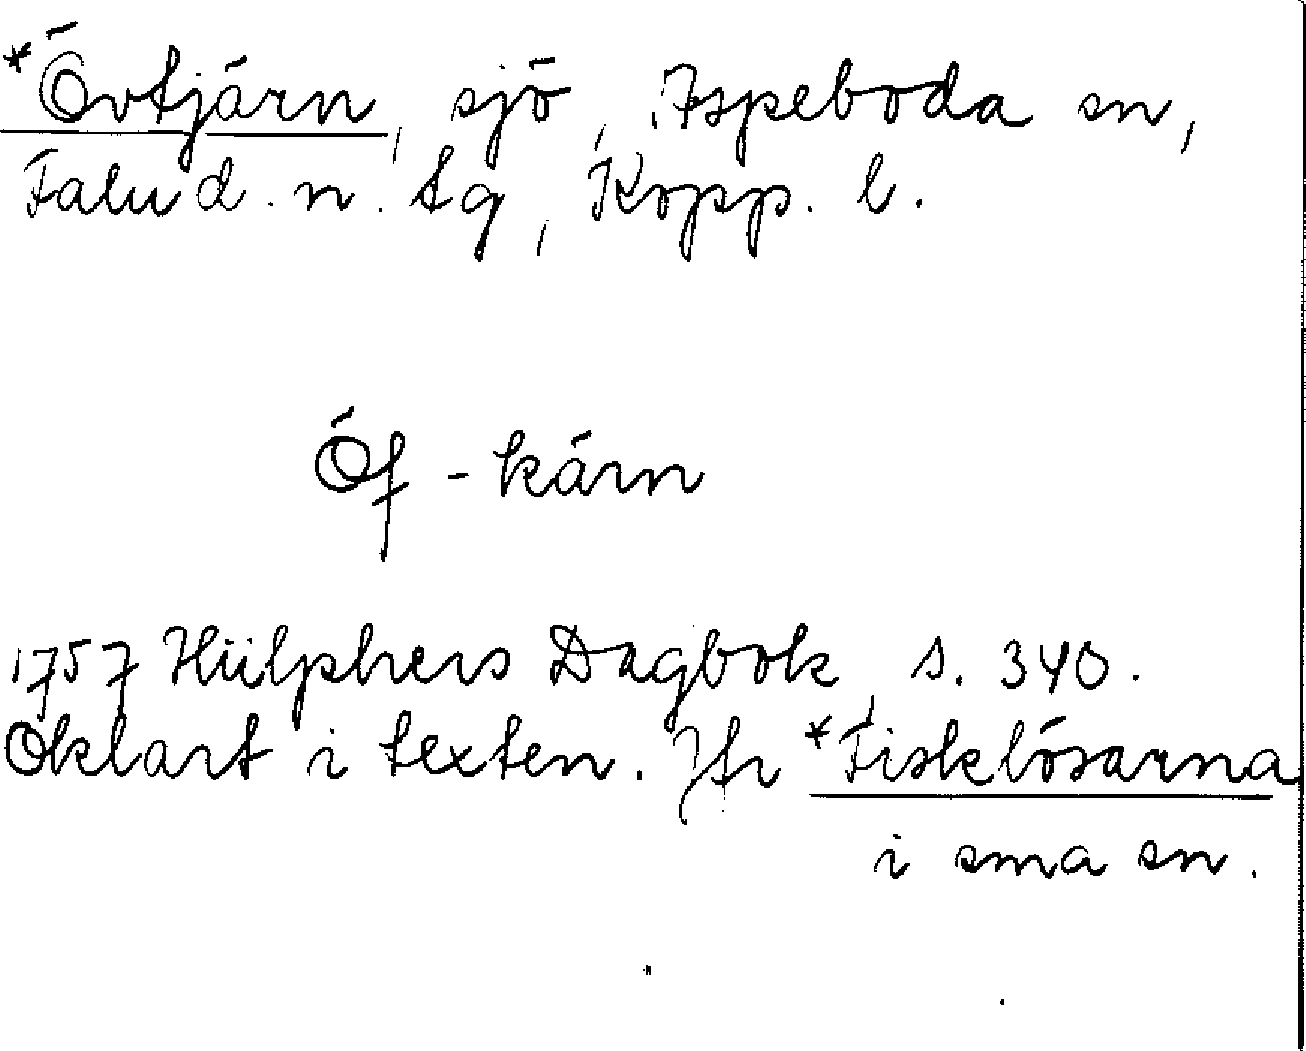 *Övtjärn, sjö, Aspeboda sn,
Falu d. n. tg, Kopp. l.
Öf-kärn
1757 Hülphers Dagbok, s. 340.
Oklart i texten. Jfr *Fisklösarna
i sma sn.